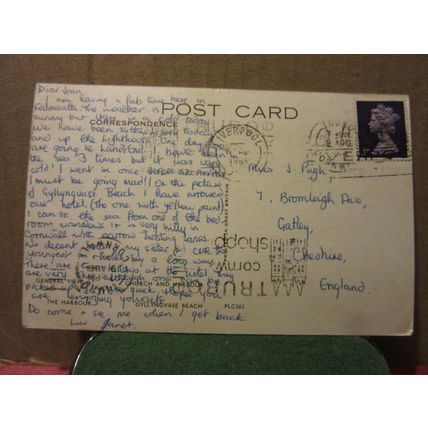 POST CARD
CORRESPONDENCE
Dear Joan,
I am having a fab time here in
Falmouth. The weather is
sunny but there is a cold
we have been to the today
and up the lighthouse. One day we
are going to Lands End. I have been in
the sea 3 times but it was very
cold! I went in once
I must be going mad!! On the picture
of Gyllyngvase Beach I have arrowed
our hotel. (The one with yellow paint)
I can see the sea from one of the bed
room windows. It is very hilly in
Cornwall with twisting lanes.
No decent my sister & I are the
youngest in the hotel by a long way.
There are at the hotel they
are very
picked up quick. Hope you
are enjoying yourself.
Do come & see me when I get back
Luv Janet.
GENERAL VIEW
CHURCH AND HARBOUR
THE HARBOUR
GYLLYNGVASE BEACH
PLC562
PRINTED IN GREAT BRITAIN
LIVERPOOL
TRURO
cornw
shopp
AUG
Miss J. Pugh,
7, Bromleigh Ave,
Gatley,
Cheshire,
England